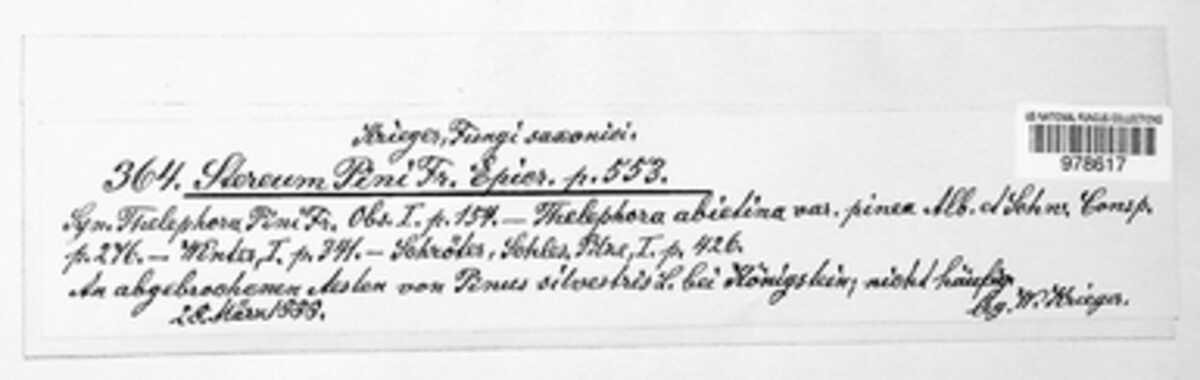 US NATIONAL FUNGUS COLLECTIONS
978617
Krieger, Fungi saxonici.
364. Stereum Pini Fr. Epicr. p. 553.
Syn. Thelephora Pini Fr. Obs. I. p. 154. — Thelephora abietina var. pinea Alb. et Schw. Consp.
p. 276. — Winter, I. p. 341. — Schröter, Schles. Pilze, I. p. 426.
An abgebrochenen Aesten von Pinus silvestris L. bei Königstein; nicht häufig.
März W. Krieger.